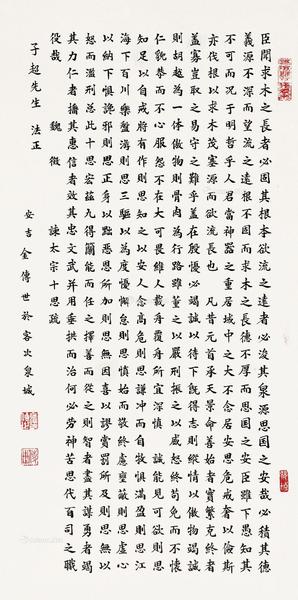 臣聞求木之長者必固其根本欲流之遠者必浚其泉源思国之安哉必積其德
義源不深而望流之遠根不固而求木之長德不厚而思国之安臣雖下愚知其
不可而况于明哲乎人君當神器之重居域中之大不念居安思危戒奢以儉斯
亦伐根以求木茂塞源而欲流長也 凡昔元首承天景命善始者實繁克終者
蓋寡豈取之易守之難乎蓋在殷憂必竭誠以待下既得志則縱情以傲物竭誠
則胡越為一体傲物則骨肉為行路雖董之以嚴刑振之以威怒終苟免而不懐
仁貌恭而心不服怨不在大可畏維人載舟覆舟所宜深慎 誠能見可欲則思
知足以自戒將有作則思知之以安人念高危則思謙冲而自牧懼滿盈則思江
海下百川樂盤游則思三驅以為度懼懈怠則思慎始而敬終慮壅蔽則思虚心
以納下懼讒邪則思正身以黜惡恩所加則思無因喜以謬賞罰所及則思無以
怒而濫刑总此十思宏兹九得簡能而任之擇善而從之則智者盡其謀勇者竭
其力仁者播其惠信者效其忠文武并用垂拱而治何必劳神苦思代百司之職
役哉 魏徵 諫太宗十思疏
子超先生 法正
安吉金傳世於客次泉城